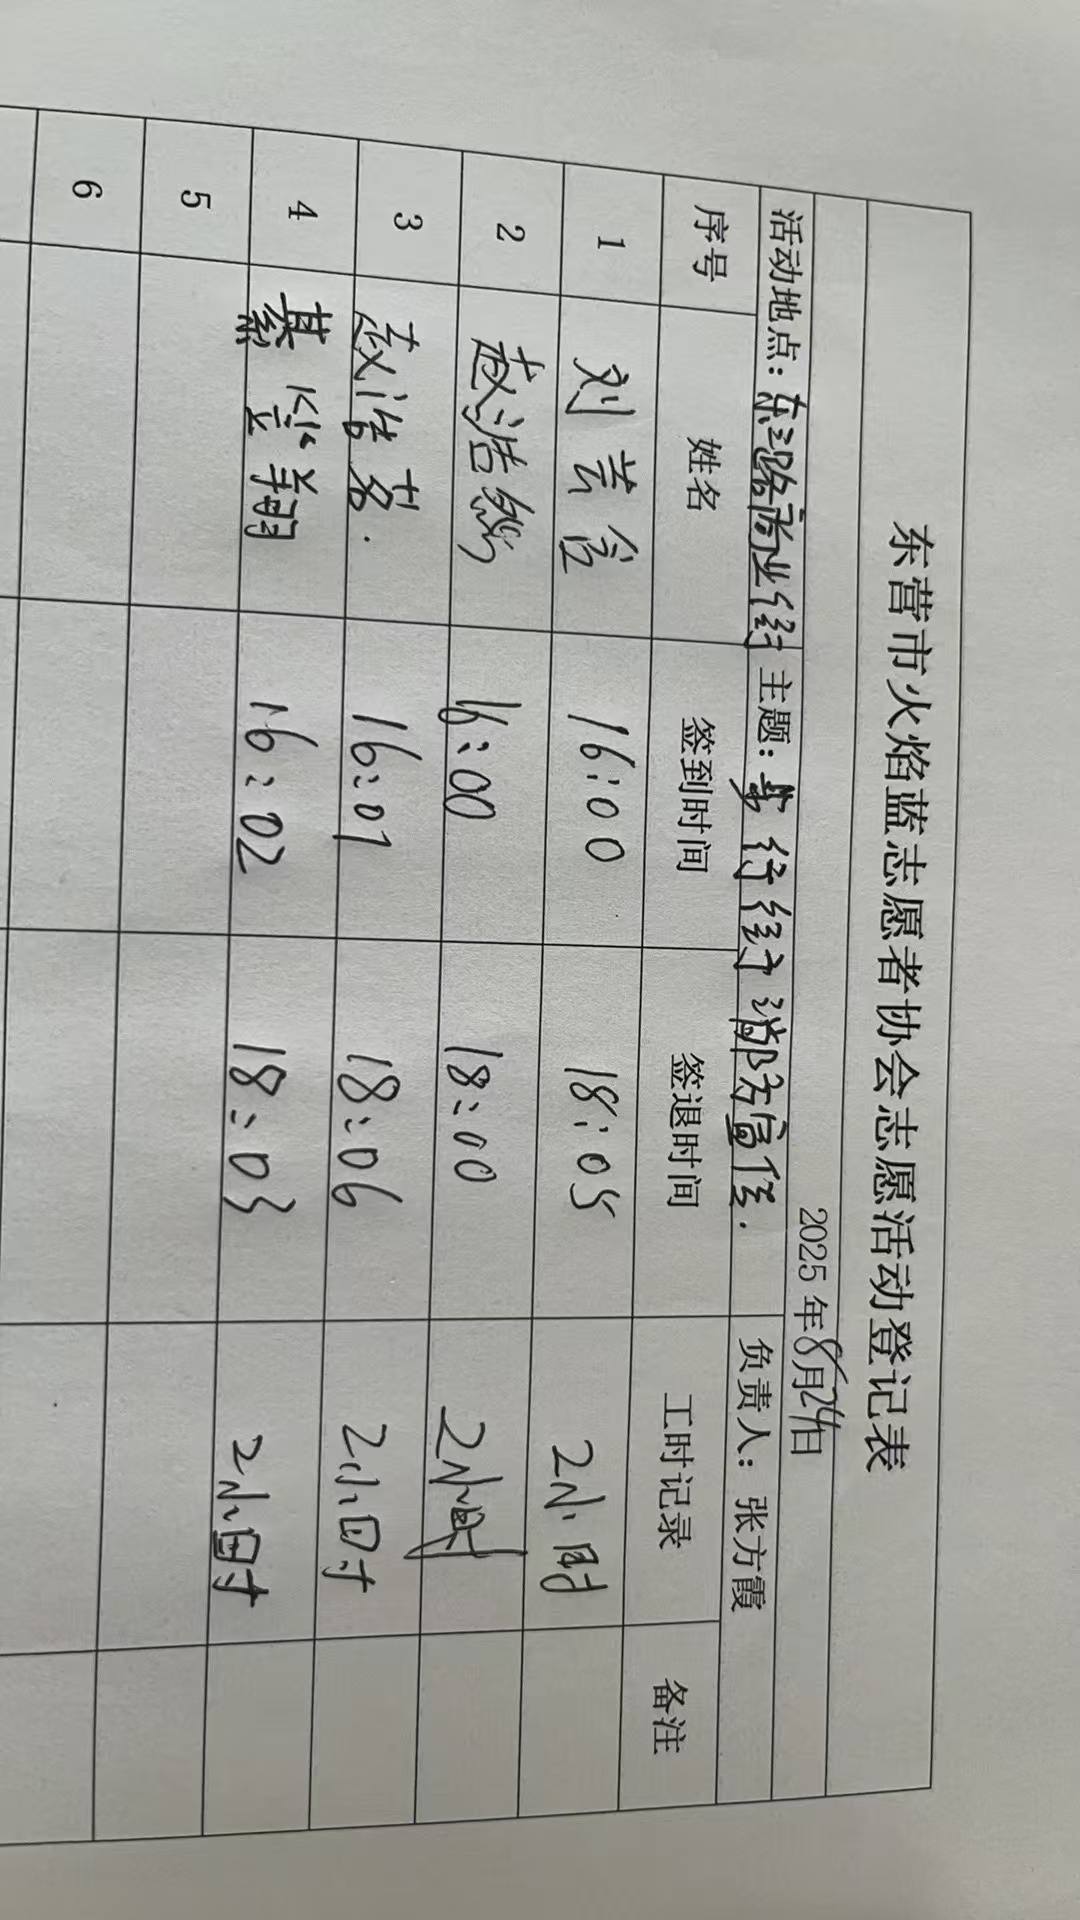 东营市火焰蓝志愿者协会志愿活动登记表
2025年8月24日
活动地点：东三路商业街 主题：步行街消防宣传. 负责人：张方霞
序号 姓名 签到时间 签退时间 工时记录 备注
1 刘芸含 16:00 18:05 2小时
2 赵浩然 16:00 18:00 2小时
3 赵浩茗. 16:01 18:06 2小时
4 綦翔 16:02 18:03 2小时
5
6